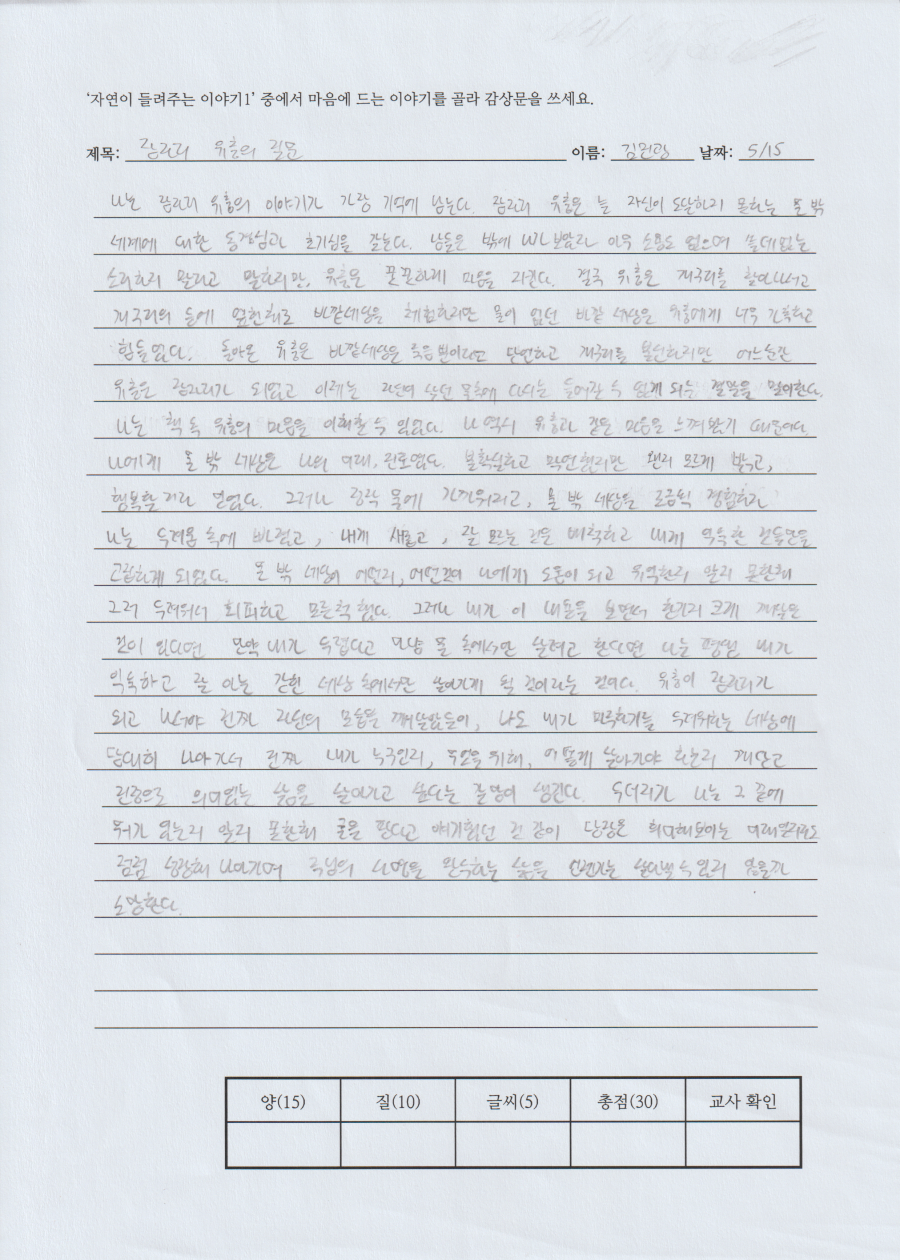 '자연이 들려주는 이야기1' 중에서 마음에 드는 이야기를 골라 감상문을 쓰세요.
제목: 잠자리 유충의 질문 이름: 날짜: 5/15
나는 잠자리 유충의 이야기가 가장 기억에 남는다. 잠자리 유충은 늘 자신이 도달하지 못하는 물 밖
세계에 대한 동경심과 호기심을 갖는다. 남들은 밖에 나가 보았자 아무 소용도 없으며 쓸데없는
소리하지 말라고 말하지만, 유충은 꿋꿋하게 마음을 지킨다. 결국 유충은 개구리를 찾아나서고
개구리의 등에 얹힌채로 바깥세상을 체험하지만 물이 없던 바깥 세상은 유충에게 너무 가혹하고
힘들었다. 돌아온 유충은 바깥세상은 죽음뿐이라면 단언하고 개구리를 불신하지만 어느순간
유충은 잠자리가 되었고 이제는 자신이 살던 물속에 다시는 들어갈 수 없게 되는 결말을 맞이한다.
나는 책 속 유충의 마음을 이해할 수 있었다. 나 역시 유충과 같은 마음을 느껴봤기 때문이다.
나에게 물 밖 세상은 나의 미래, 진로였다. 불확실하고 막연했지만 왠지 모르게 밝고,
행복할 거라 믿었다. 그러나 정작 뭍에 가까워지고, 물 밖 세상을 조금씩 경험하자
나는 두려움 속에 빠졌고, 내게 새롭고, 잘 모르는 것은 배척하고 내게 익숙한 것들만을
고집하게 되었다. 물 밖 세상이 어떤지, 어떤것이 나에게 도움이 되고 유익한지 알지 못한채
그저 두려워서 회피하고 모른척 했다. 그러나 내가 이 내용을 보면서 한가지 크게 깨달은
것이 있다면 만약 내가 두렵다고 마냥 물 속에서만 살려고 한다면 나는 평생 내가
익숙하고 잘 아는 갇힌 세상 속에서만 살아가게 될 것이라는 것이다. 유충이 잠자리가
되고 나서야 진짜 자신의 모습을 깨달았듯이, 나도 내가 마주하기를 두려워하는 세상에
담대히 나아가서 진짜 내가 누구인지, 무엇을 위해, 어떻게 살아가야 하는지 깨닫고
진정으로 의미있는 삶을 살아가고 싶다는 열망이 생긴다. 두더지가 나는 그 끝에
뭐가 있는지 알지 못한채 굴을 판다고 얘기했던 것 같이 당장은 희미해보이는 미래일지라도
점점 성장해 나아가며 주님의 사명을 완수하는 삶을 언젠가는 살아낼 수 있지 않을까
소망한다.
양(15) 질(10) 글씨(5) 총점(30) 교사 확인